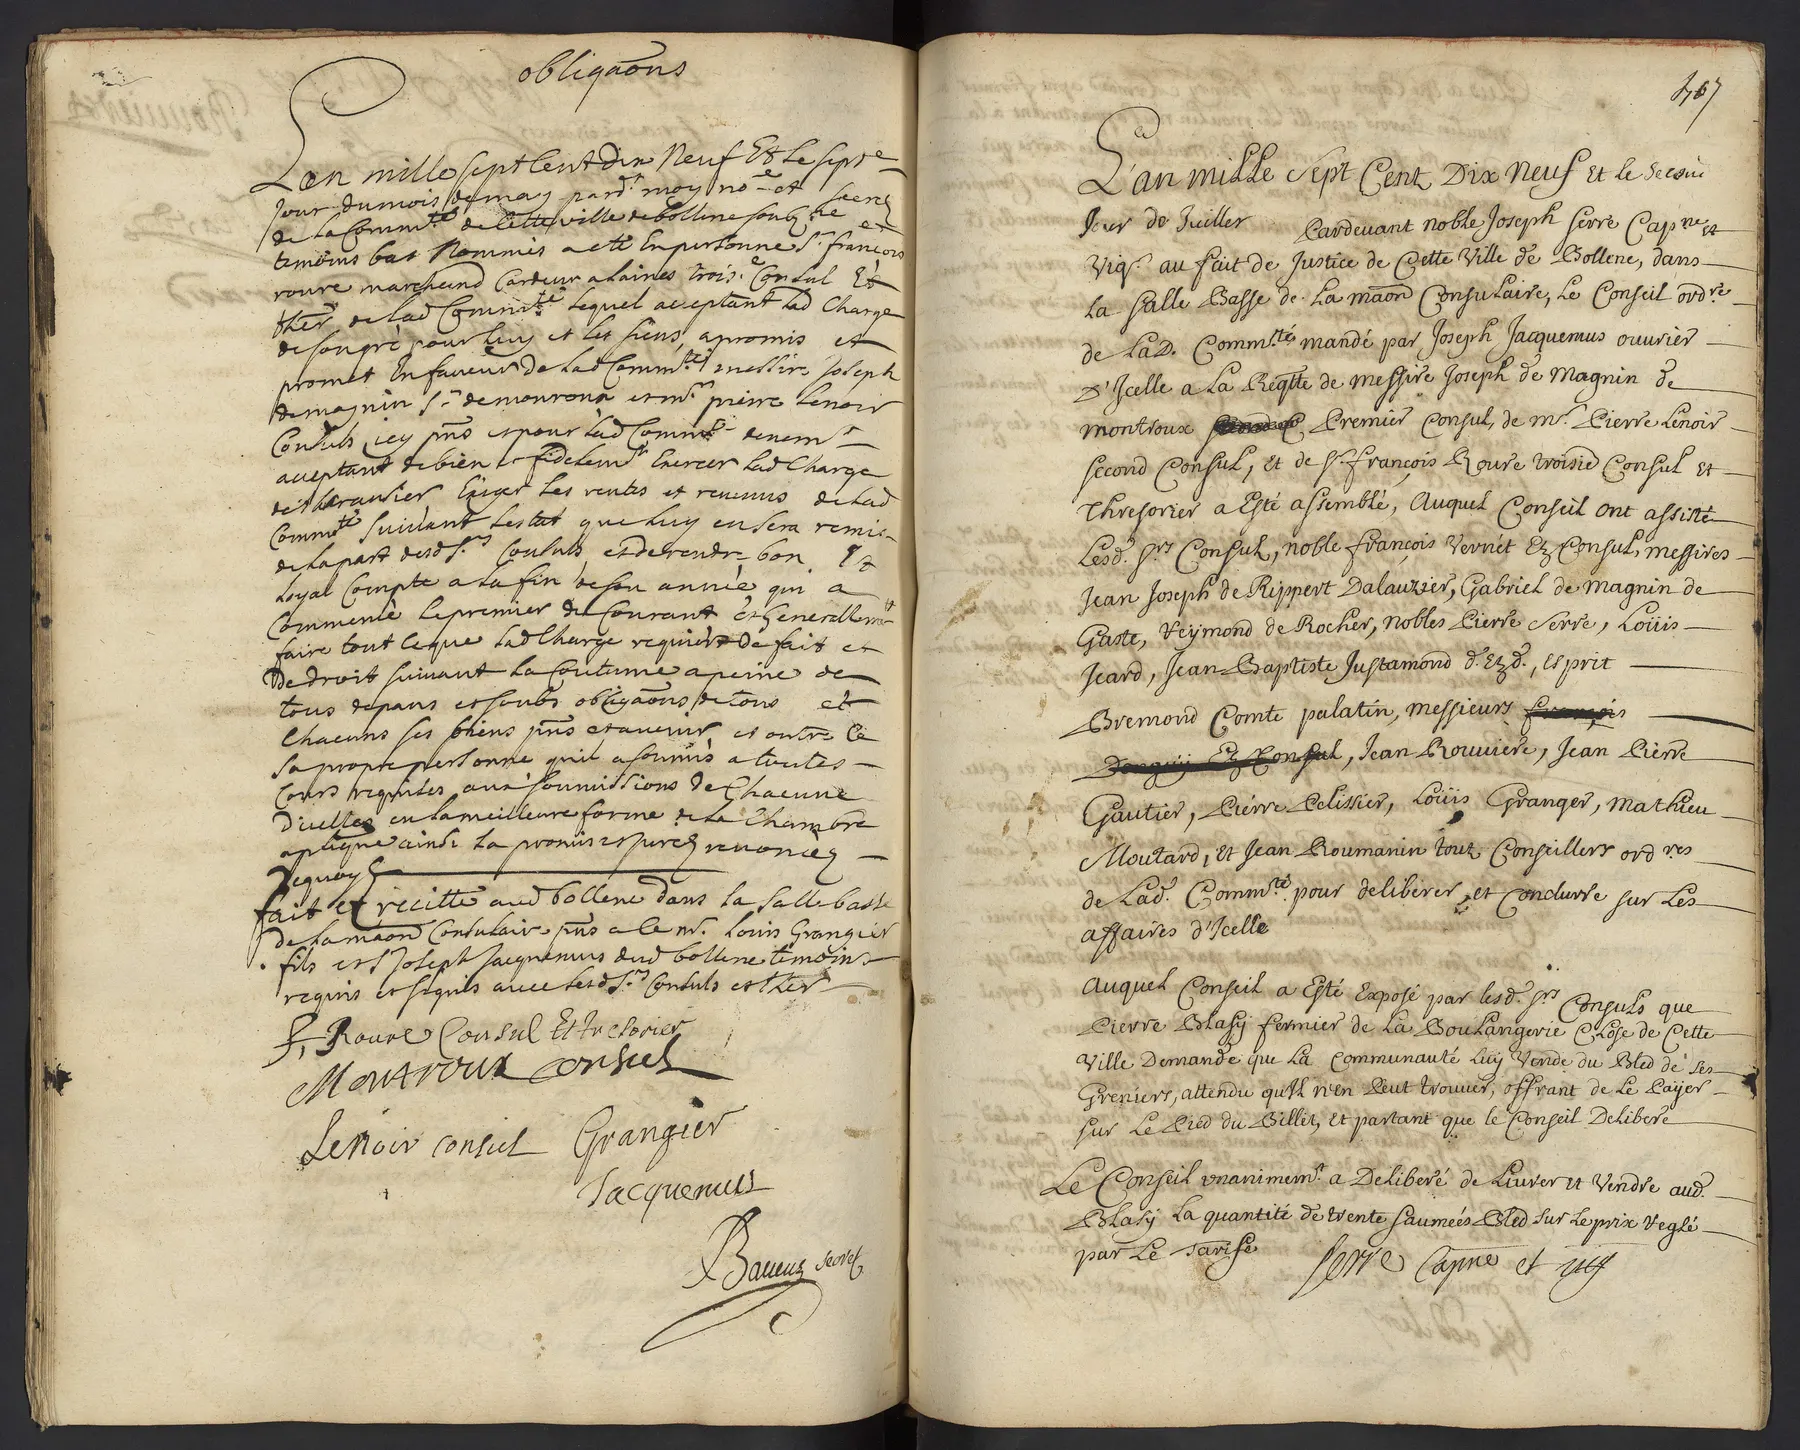 obligaõns
L'an mille sept Cent dix Neuf Et Le sept.e
Jour du mois de may pard.t moy no.re et secre.
de la Comm.té de Cette ville de bollene soubz.né et
temoins bas Nommés a eté En personne S.r francois
roure marchand Cardeur a laines trois.e Consul Et
thér. de lad Comm.té lequel acceptant lad Charge
de son gré pour luy et les siens, a promis et
promet En faveur de lad Comm.té messire Joseph
de magnin S.r de montroux et m.r pierre lenoir
Consuls icy pñs et pour lad Comm.té
acceptant de bien et fidelem.t Exercer lad Charge
de thesaurier Exiger les rentes et revenus de lad
Comm.té suivant l'estat que luy en sera remis
de la part desd S.rs Consuls et de rendre bon Et
loyal Compte a la fin de son année qui a
Commencé le premier du Courant et Generallem.t
faire tout ce que lad Charge requiert de fait et
De droit suivant la Coutume a peine de
tous depans et soubs obligaõns de tous et
Chacuns ses biens pñs et avenir et outre Ce
sa propre personne qu'il a soumis a toutes
Cours requises aux soumissions de Chacune
D'icelles en la meilleure forme de la Chambre
aplique ainsi la promis et juré renoncé
Dequoy
fait et recitté aud bollene dans la salle basse
de la maõn Consulaire pñs a ce m.r Louis Grangier
fils et S.r Joseph Jacquemus dud bollene temoins
requis et signés avec lesd S.rs Consuls et ther
F, Roure Consul Et tresorier
Montroux Consul
Lenoir consul Grangier
Jacquemus
secre.
L'an mille Sept Cent Dix Neuf et le Second
Jour de Juillet Pardevant noble Joseph Serre Cap.ne et
Vig.r au fait de Justice de Cette Ville de Bollene, dans
la Salle Basse de La maõn Consulaire, Le Conseil ord.re
de LaD. Comm.té mandé par Joseph Jacquemus ouvrier
D'Icelle a La Reqte de messire Joseph de Magnin de
montroux Premier Consul, de m.r Pierre Lenoir
second Consul, et de S.r françois Roure troisie Consul et
Thresorier a Esté assemblé, Auquel Conseil ont assisté
Lesd. S.rs Consul, noble françois Vernet Ex Consul, messires
Jean Joseph de Rippert Dalauzier, Gabriel de Magnin de
Gaste, Reymond de Rocher, nobles Pierre Serre, Loüis
Jeard, Jean Baptiste Justamond d. Ez d., Esprit
Bremond Comte palatin, messieurs françois
Ex Consul, Jean Rouviere, Jean Pierre
Gautier, Pierre Pelissier, Loüis Granger, Mathieu
Moutard, et Jean Roumanin touz Conseillers ord.res
de Lad. Comm.té pour deliberer et Conclurre sur Les
affaires d'Icelle
Auquel Conseil a Esté Exposé par lesd. S.rs Consuls que
Pierre Blasy fermier de La Boulangerie Close de Cette
Ville Demande que La Communauté Luy Vende du Bled de ses
Greniers, attendu qu'il n'en Peut trouver, offrant de Le Payer
sur Le Pied du Billet, et partant que le Conseil Delibere
Le Conseil unanimem.t a Deliberé de Livrer et Vendre aud.
Blasy La quantité de trente saumées Bled sur le prix reglé
par Le Tariffe Serre Capne et vig